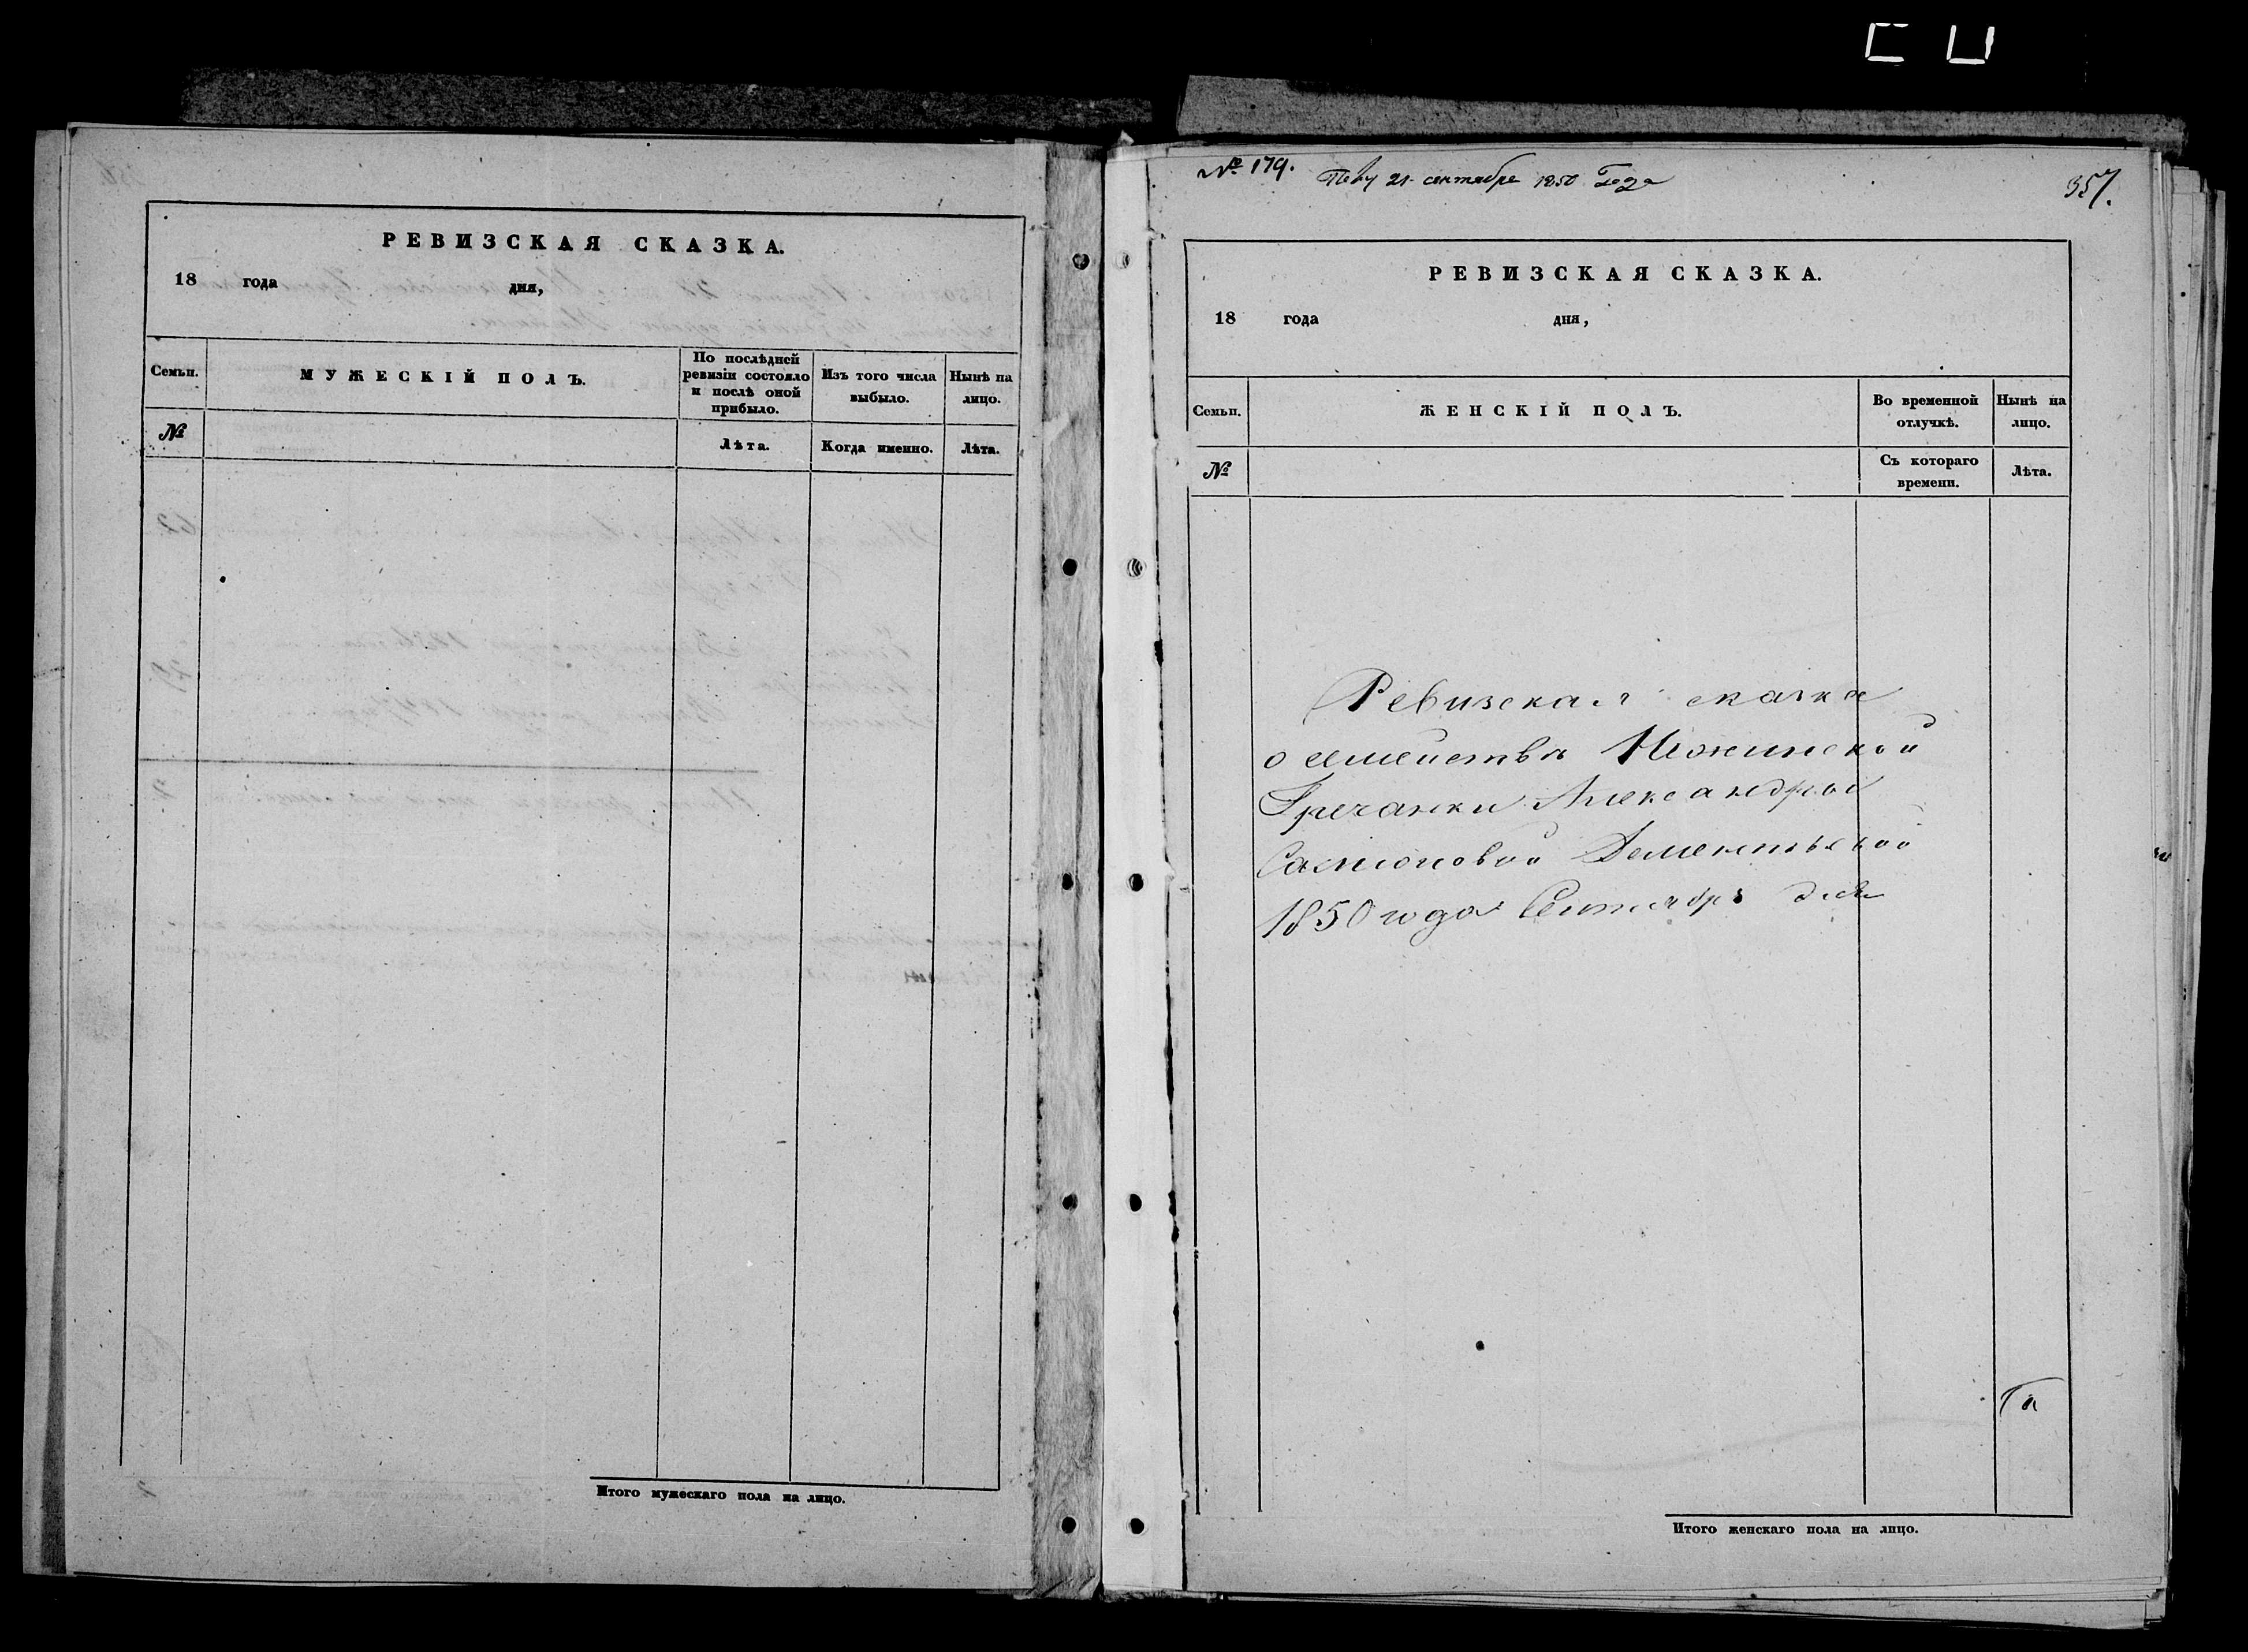 РЕВИЗСКАЯ СКАЗКА.
18 года дня,
Семьи.
МУЖЕСКІЙ ПОЛЪ.
По послѣдней
ревизіи состояло
и послѣ оной
прибыло.
Изъ того числа
выбыло.
Нынѣ на
лицо.
№
Лѣта.
Когда именно.
Лѣта.
Итого мужескаго пола на лицо.
№ 179.
21 сентября 1850 года
357.
РЕВИЗСКАЯ СКАЗКА.
18 года дня,
Семьи.
ЖЕНСКІЙ ПОЛЪ.
Во временной
отлучкѣ.
Нынѣ на
лицо.
№
Съ котораго
времени.
Лѣта.
Ревизская сказка
о семействѣ Нежинской
Гречанки Александры
Самсоновой Дементьевой
1850 года Сентября дня
Итого женскаго пола на лицо.